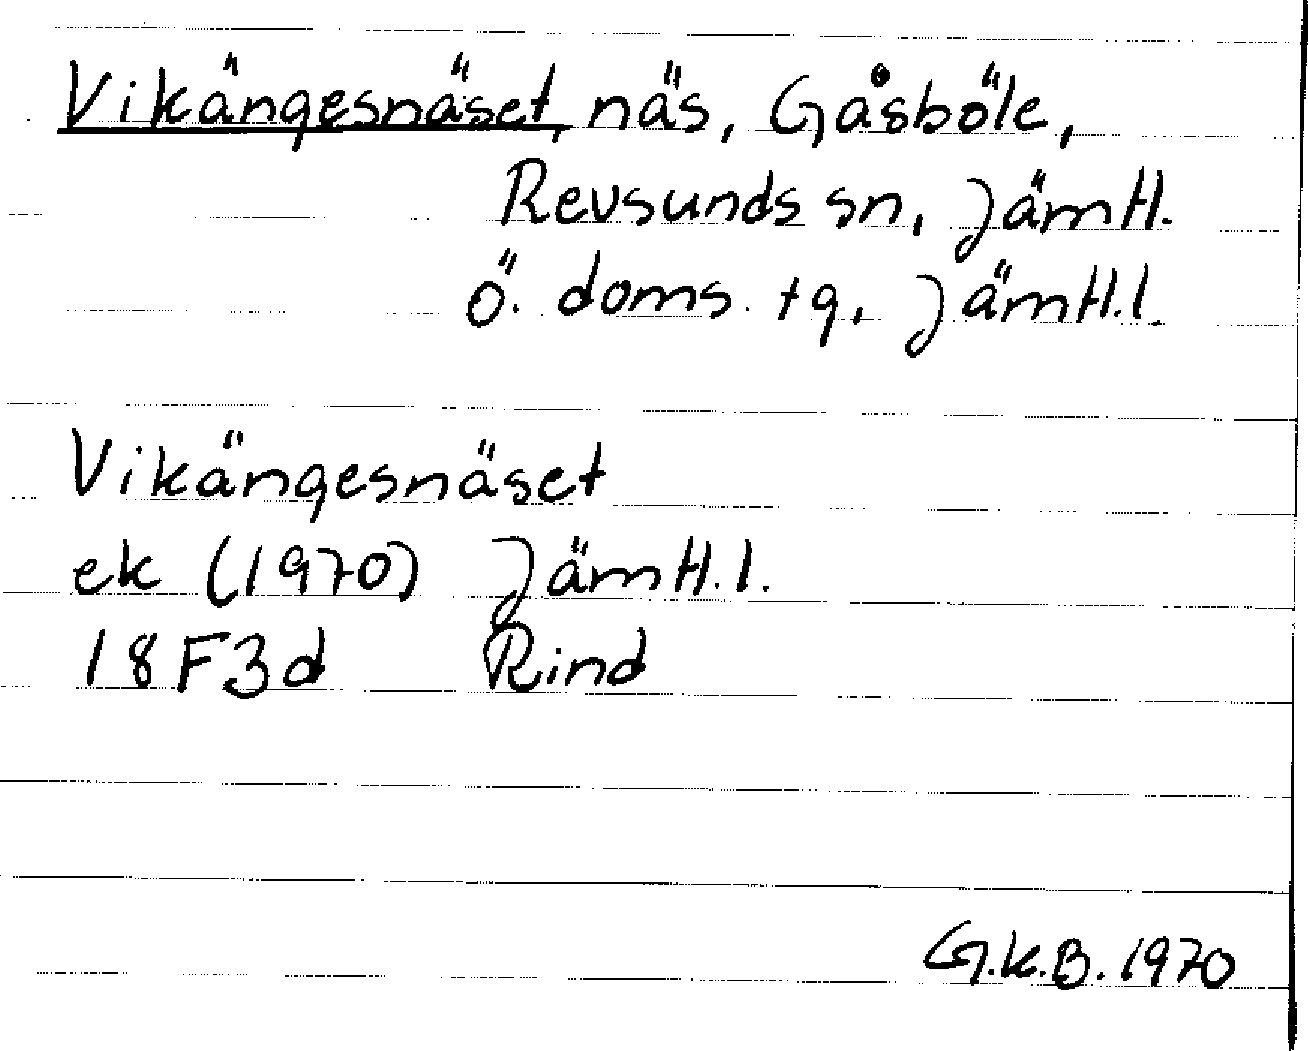 Vikängesnäset, näs, Gåsböle,
Revsunds sn, Jämtl.
ö. doms. tg, Jämtl.l.
Vikängesnäset
ek (1970) Jämtl.l.
18F3d Rind
G.K.B. 1970